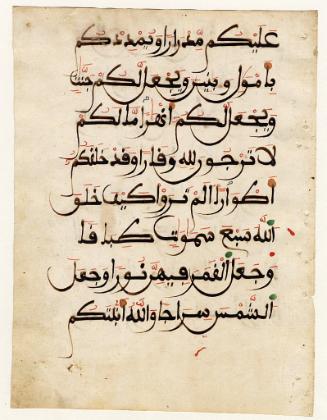 عليكم مدرارا ويمددكم
بأمول وبنين ويجعل لكم جنت
ويجعل لكم أنهرا ما لكم
لا ترجون لله وقارا وقد خلقكم
أطوارا ألم تروا كيف خلق
الله سبع سموت طباقا
وجعل القمر فيهن نورا وجعل
الشمس سراجا والله أنبتكم